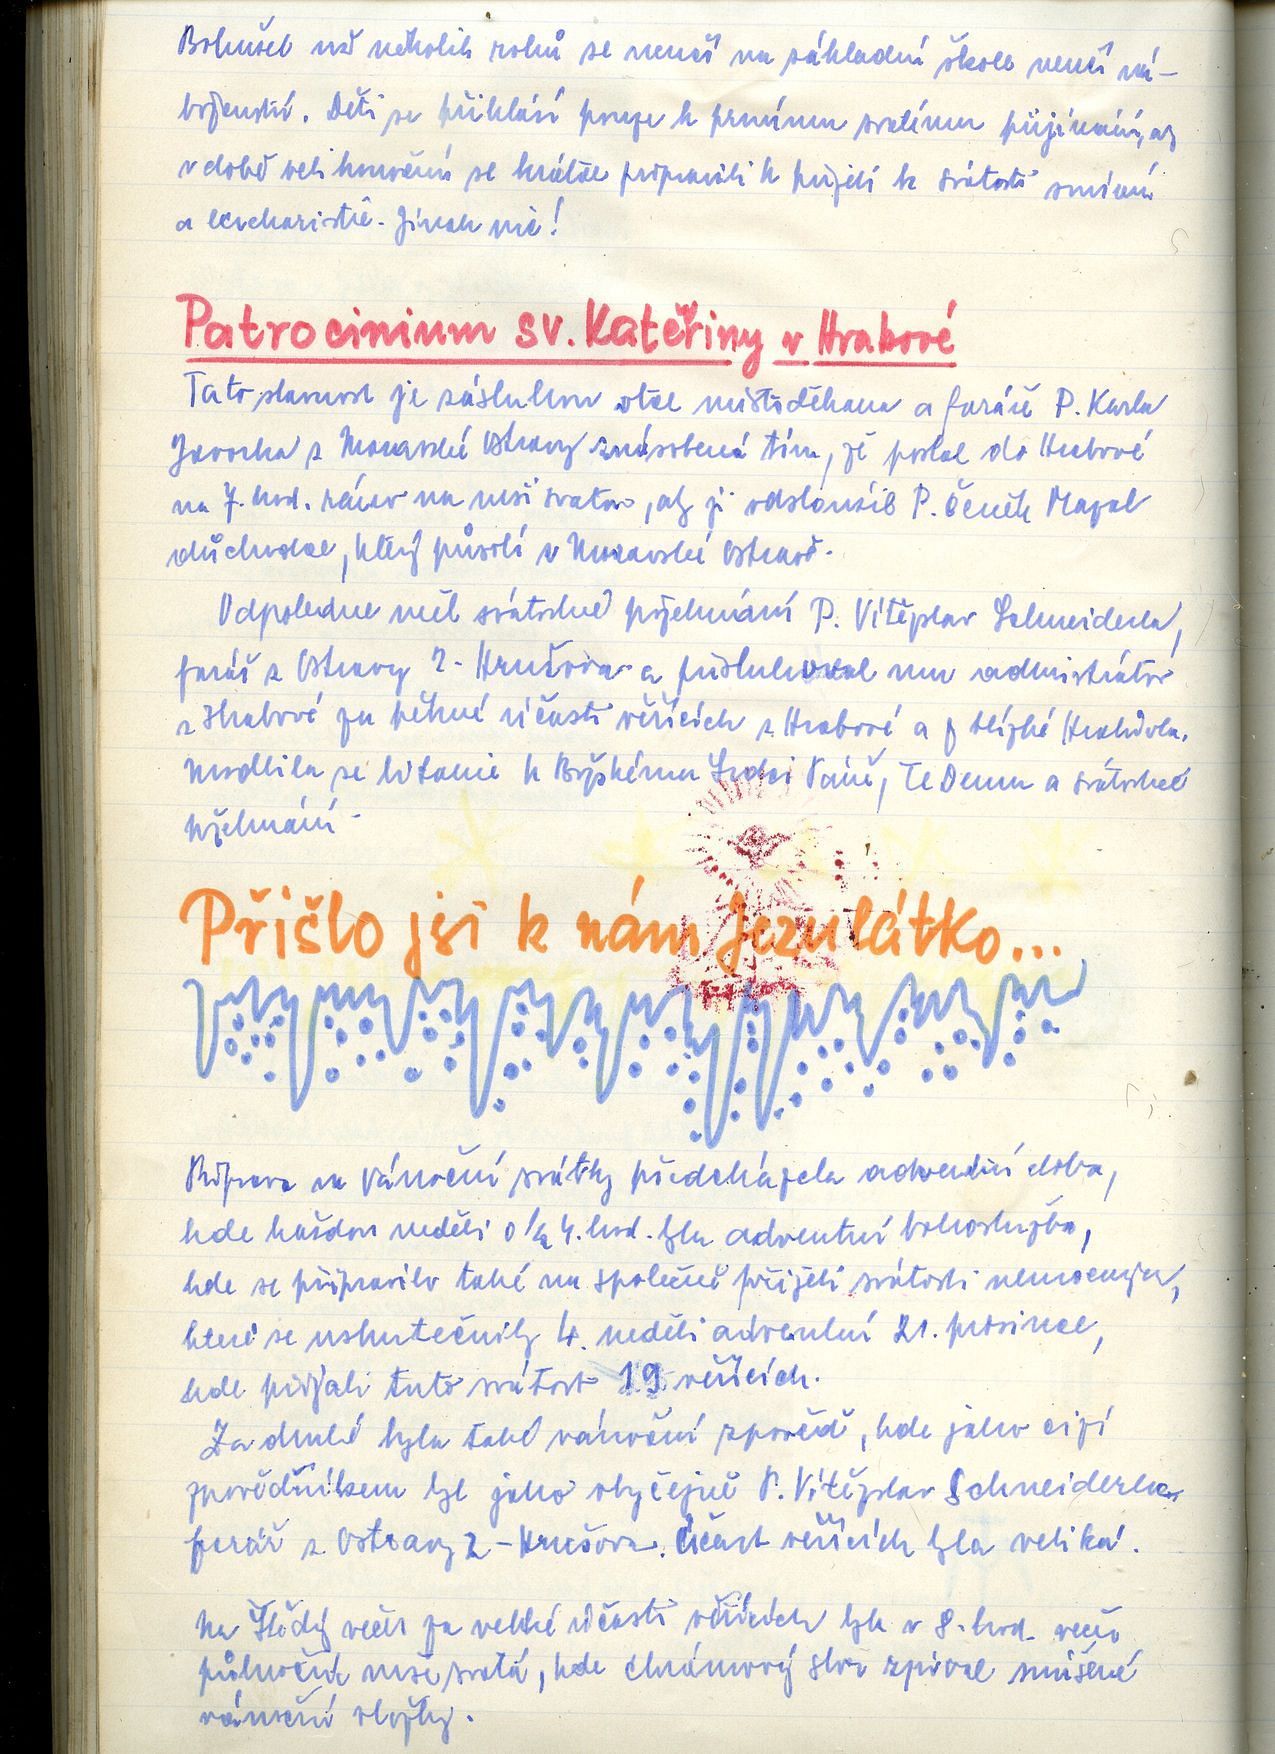 Bohužel už několik roků se neučí na základní škole neučí ná-
boženství. Děti se přihlásí pouze k prvnímu svatému přijímání, aby
v době velikonoční se krátce připravili k přijetí k svátosti smíření
a eucharistie. Jinak nic!
Patrocinium sv. Kateřiny v Hrabové
Tato slavnost je zásluhou otce místoděkana a faráře P. Karla
z Moravské Ostravy znásobená tím, že poslal do Hrabové
na 7. hod. ráno na mši svatou, aby ji odsloužil P. Čeněk
důchodce, který působí v Moravské Ostravě.
Odpoledne měl svátostné požehnání P. Vítězslav Schneiderka,
farář z Ostravy 2 - Hrušova a přisluhoval mu admistrátor
z Hrabové za pěkné účasti věřících z Hrabové a z blízké Hrabůvka.
Modlila se litanie k Božskému Srdci Páně, Te Deum a svátostné
požehnání.
Přišlo jsi k nám Jezulátko...
Příprava na Vánoční svátky předcházela adventní doba,
kde každou neděli o 1/2 4. hod. byla adventní bohoslužba,
kde se připravilo také na společné přijetí svátosti nemocných,
které se uskutečnily 4. neděli adventní 21. prosince,
kde přijali tuto svátost 19 věřících.
Za druhé byla také vánoční zpověď, kde jako cizí
zpovědníkem byl jako obyčejně P. Vítězslav Schneiderka
farář z Ostravy 2 - Hrušova. Účast věřících byla veliká.
Na Štědrý večer za velké účasti věřících byla v 8. hod. večer
půlnoční mše svatá, kde chrámový sbor zpíval smíšené
vánoční vložky.